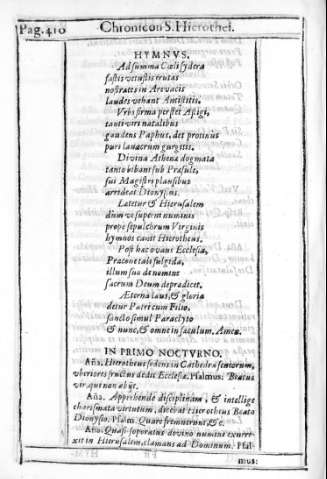 Pag.410 Chronicon S. Hierothei.
HYMNUS.
Ad summa Cœli sydera
fastis vetustis erutas
nostrates in Arevacis
laudes vehant Antistitis.
Urbs firma perstet Astigi,
tanti viri natalibus
gaudens Paphus, det protinus
puri lavacrum gurgitis.
Divina Athena dogmata
tanto bibant sub Præsule,
sui Magistri plausibus
arrideat Dionysius.
Lætetur & Hierusalem
dium ve superni numinis
prope sepulchrum Virginis
hymnos canit Hierotheus.
Post hæc ovans Ecclesia,
Præcone tali fulgida,
illum suo de nomine
sacrum Deum deprædicet.
Æterna laus, & gloria
detur Patri cum Filio,
sancto simul Paraclyto
& nunc, & omne in sæculum. Amen.
IN PRIMO NOCTURNO.
Aña. Hierotheus sedens in Cathedra seniorum,
uberiores fructus dedit Ecclesiæ. Psalmus. Beatus
vir qui non abijt.
Aña. Apprehende disciplinam, & intellige
charismata virtutum, dicebat Hierotheus Beato
Dionysio. Psalm. Quare fremuerunt &c.
Aña. Quasi soporatus divino numine exurre-
xit in Hierusalem, clamans ad Dominum. Psal-
mus: